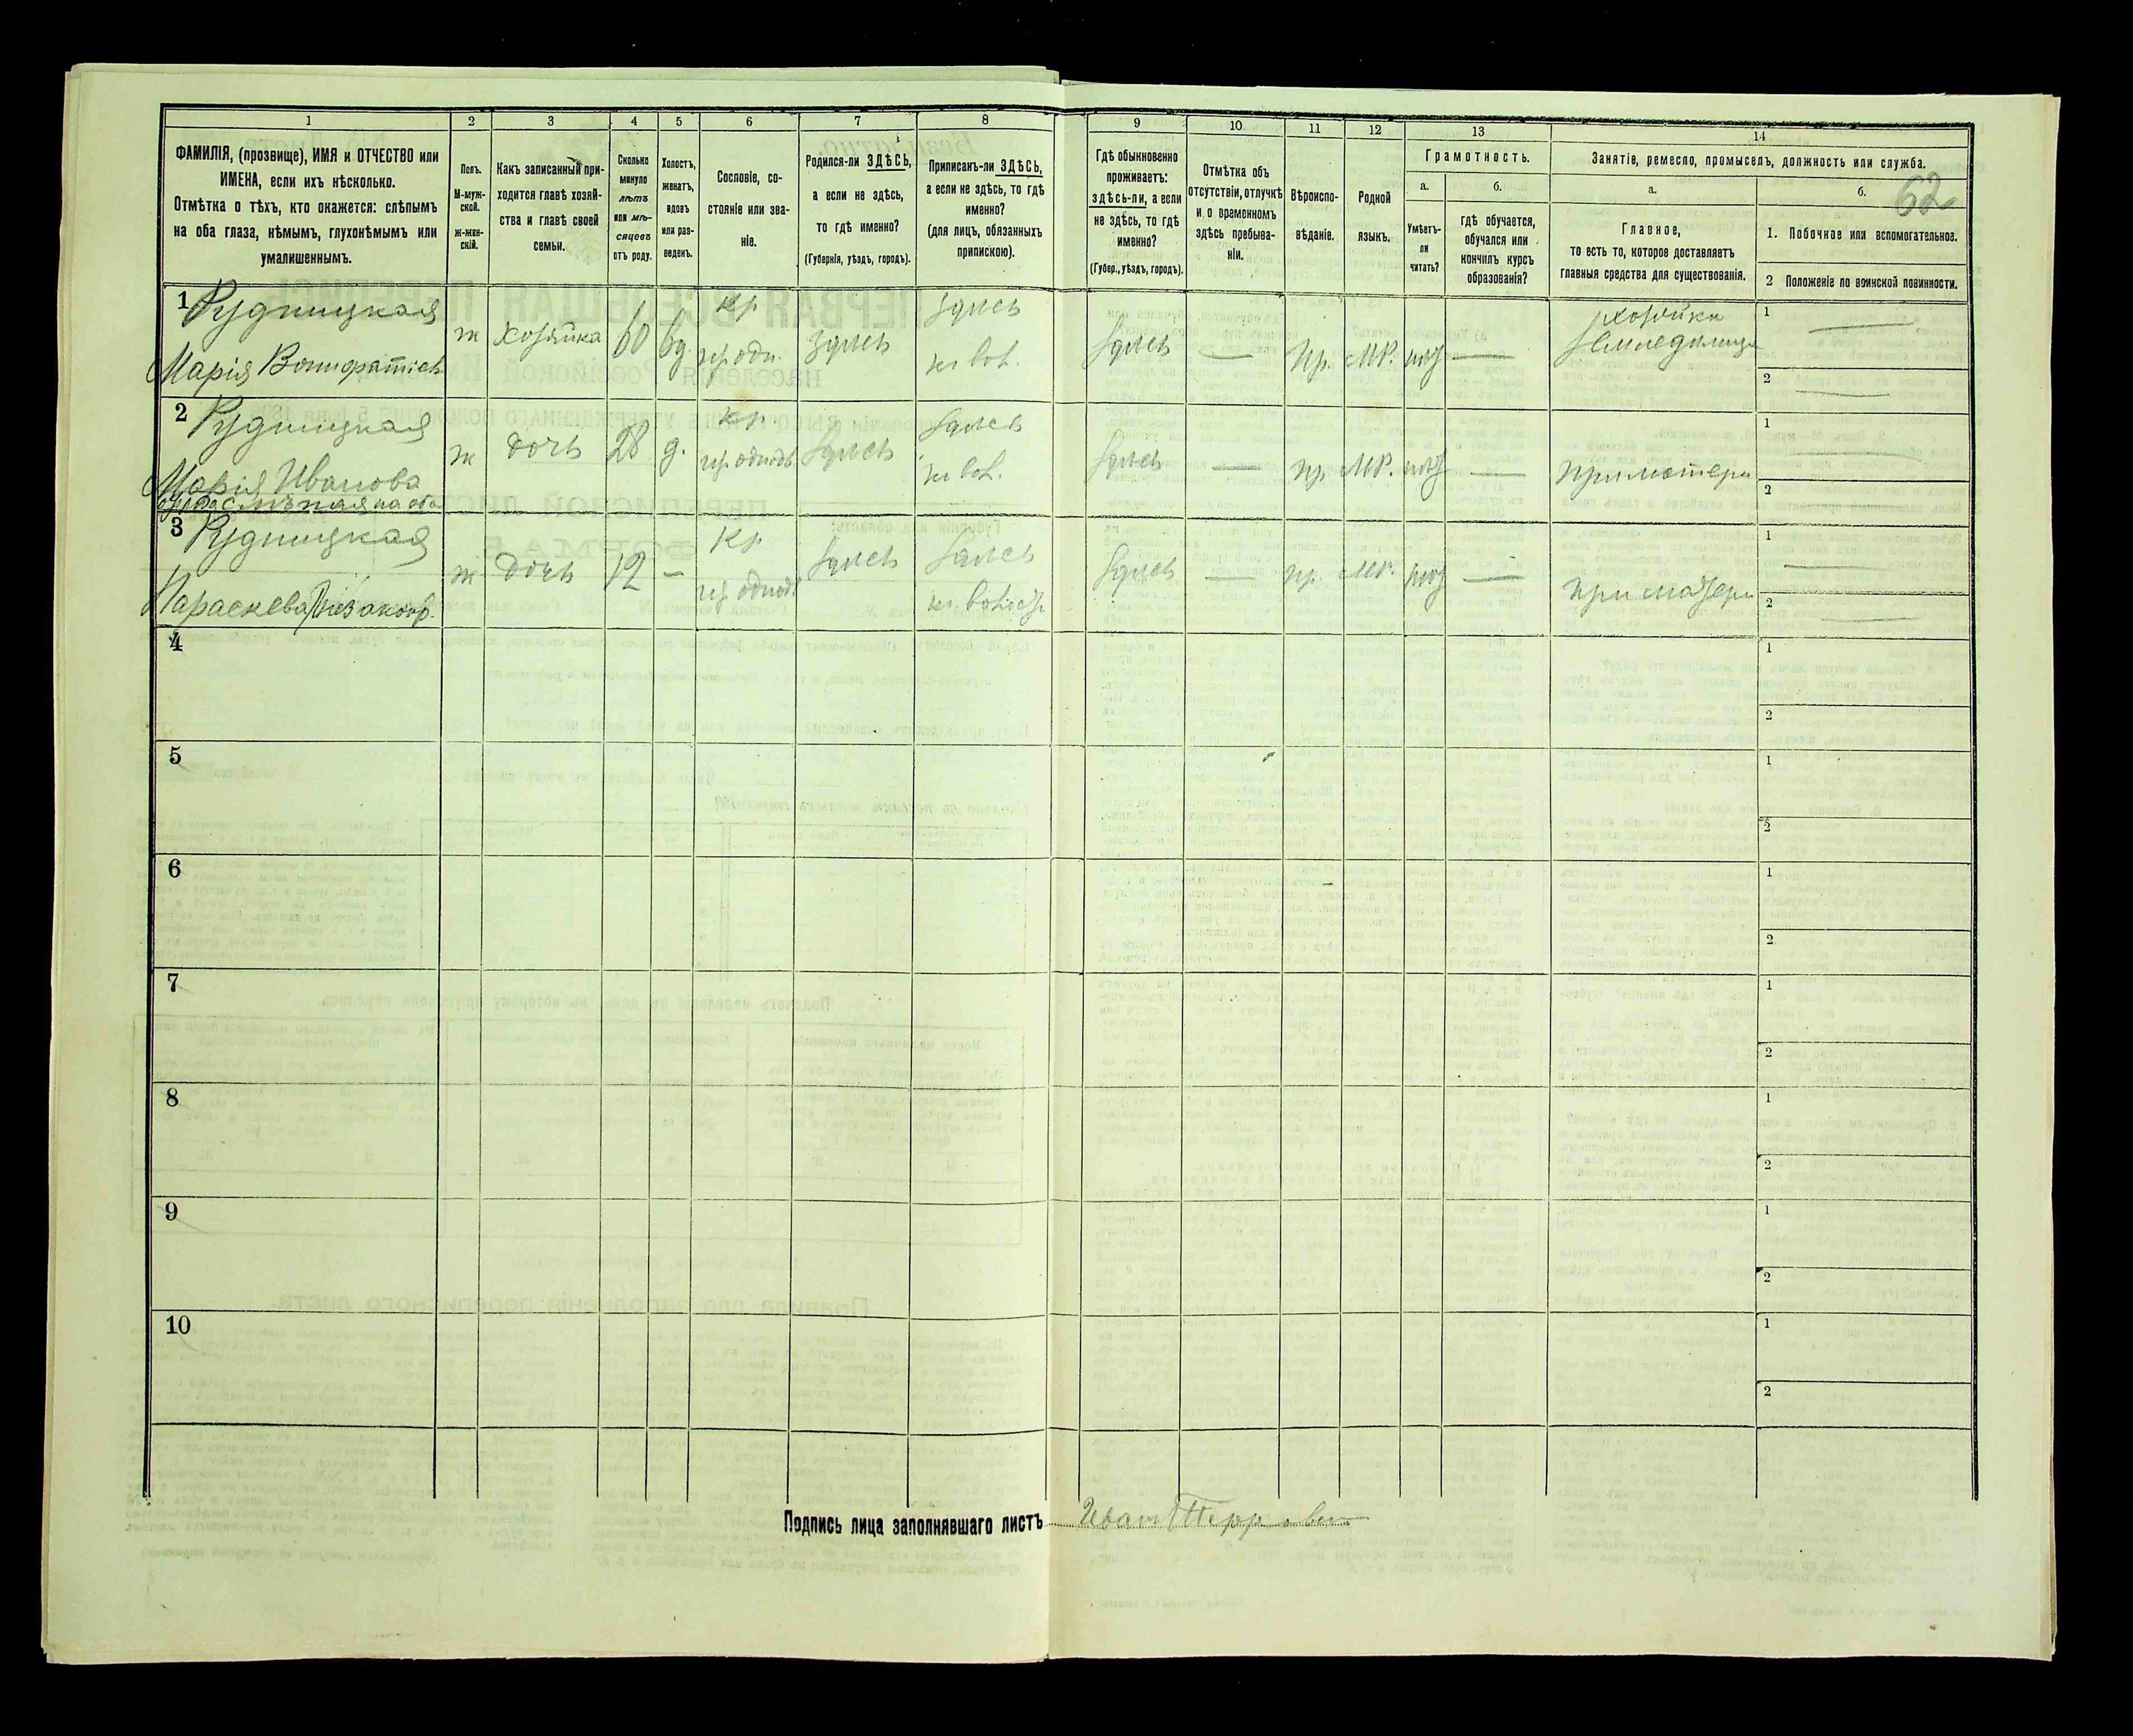 1
2
3
4
5
6
7
8
ФАМИЛІЯ, (прозвище), ИМЯ и ОТЧЕСТВО или
ИМЕНА, если ихъ нѣсколько.
Отмѣтка о тѣхъ, кто окажется: слѣпымъ
на оба глаза, нѣмымъ, глухонѣмымъ или
умалишеннымъ.
Полъ.
М-муж-
ской.
ж-жен-
скій.
Какъ записанный при-
ходится главѣ хозяй-
ства и главѣ своей
семьи.
Сколько
минуло
лѣтъ
или мѣ-
сяцевъ
отъ роду.
Холостъ,
женатъ,
вдовъ
или раз-
веденъ.
Сословіе, со-
стояніе или зва-
ніе.
Родился-ли ЗДѢСЬ,
а если не здѣсь,
то гдѣ именно?
(Губернія, уѣздъ, городъ).
Приписанъ-ли ЗДѢСЬ,
а если не здѣсь, то гдѣ
именно?
(для лицъ, обязанныхъ
припискою).
9
10
11
12
13
14
Гдѣ обыкновенно
проживаетъ:
здѣсь-ли, а если
не здѣсь, то гдѣ
именно?
(Губер., уѣздъ, городъ).
Отмѣтка объ
отсутствіи, отлучкѣ
и о временномъ
здѣсь пребыва-
ніи.
Вѣроиспо-
вѣданіе.
Родной
языкъ.
Грамотность.
а.
Умѣетъ-
ли
читать?
б.
гдѣ обучается,
обучался или
кончилъ курсъ
образованія?
Занятіе, ремесло, промыселъ, должность или служба.
а.
Главное,
то есть то, которое доставляетъ
главныя средства для существованія.
б.
62
1. Побочное или вспомогательное.
2 Положеніе по воинской повинности.
1 Рудницкая
Марія
ж
хозяйка
60
вд.
кр.
здѣсь
здѣсь
здѣсь
—
пр.
МР.
—
хозяйка
1 —
2 —
2 Рудницкая
Марія Иванова
слѣпая на оба
ж
дочь
28
д.
кр.
здѣсь
здѣсь
здѣсь
—
пр
МР.
—
при матери
1 —
2
3 Рудницкая
Параскева
ж
дочь
12
–
кр
здѣсь
здѣсь
здѣсь
—
пр
МР.
—
при матери
1 —
2 —
4
1
2
5
1
2
6
1
2
7
1
2
8
1
2
9
1
2
10
1
2
Подпись лица заполнявшаго листъ Иван